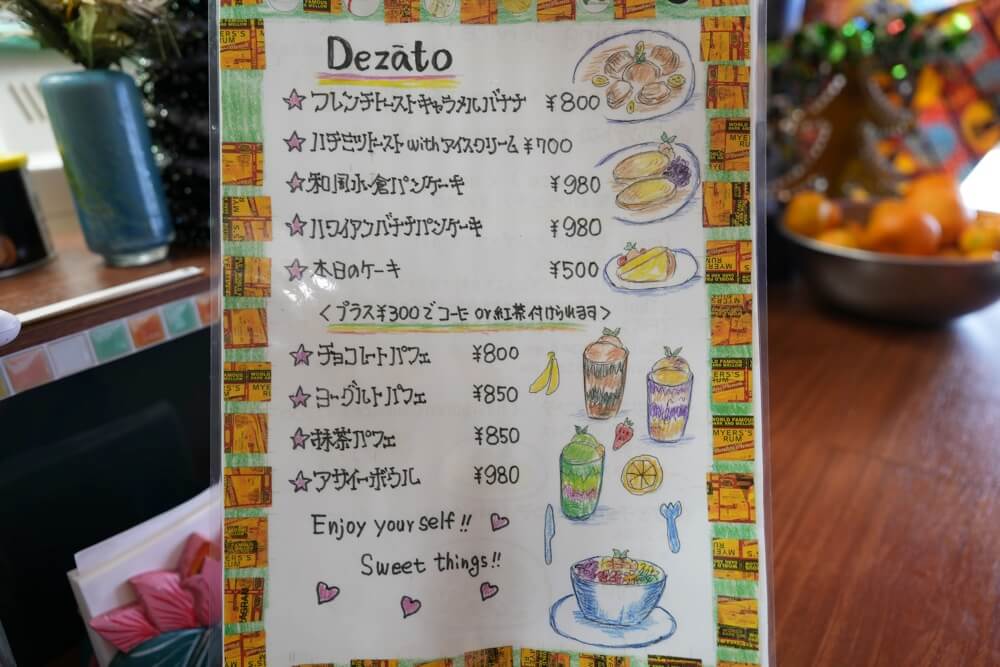 Dezāto
フレンチトーストキャラメルバナナ ¥800
ハチミツトーストwithアイスクリーム ¥700
和風小倉パンケーキ ¥980
ハワイアンバナナパンケーキ ¥980
本日のケーキ ¥500
<プラス¥300でコーヒー or 紅茶付けられます>
チョコレートパフェ ¥800
ヨーグルトパフェ ¥850
抹茶パフェ ¥850
アサイーボウル ¥980
Enjoy yourself!!
Sweet things!!
MYERS'S
RUM
WORLD FAMOUS